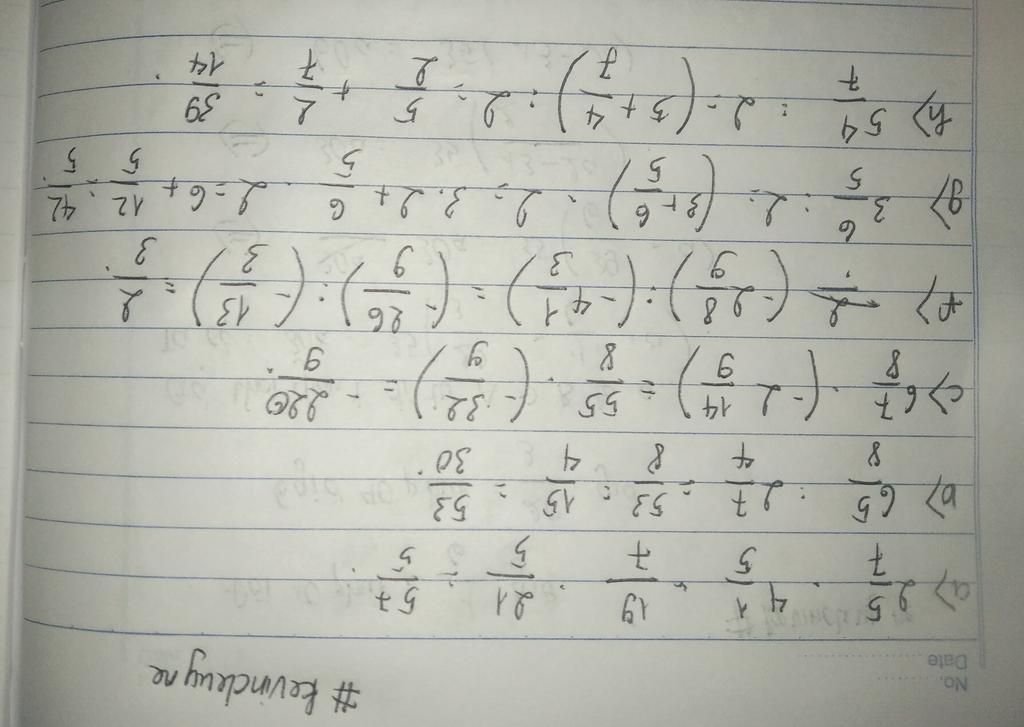 No.
Date
#kevindeuyne
a) 2 5/7 . 4 1/5 = 19/7 . 21/5 = 57/5
b) 6 5/8 : 2 7/4 = 53/8 : 15/4 = 53/30.
c) 6 7/8 . (-2 14/9) = 55/8 . (-32/9) = -220/9.
f) (-2 8/9) : (-4 1/3) = (-26/9) : (-13/3) = 2/3.
g) 3 6/5 . 2 = (3 + 6/5) . 2 = 3.2 + 6/5 . 2 = 6 + 12/5 = 42/5.
h) 5 4/7 : 2 = (5 + 4/7) : 2 = 5/2 + 2/7 = 39/14.